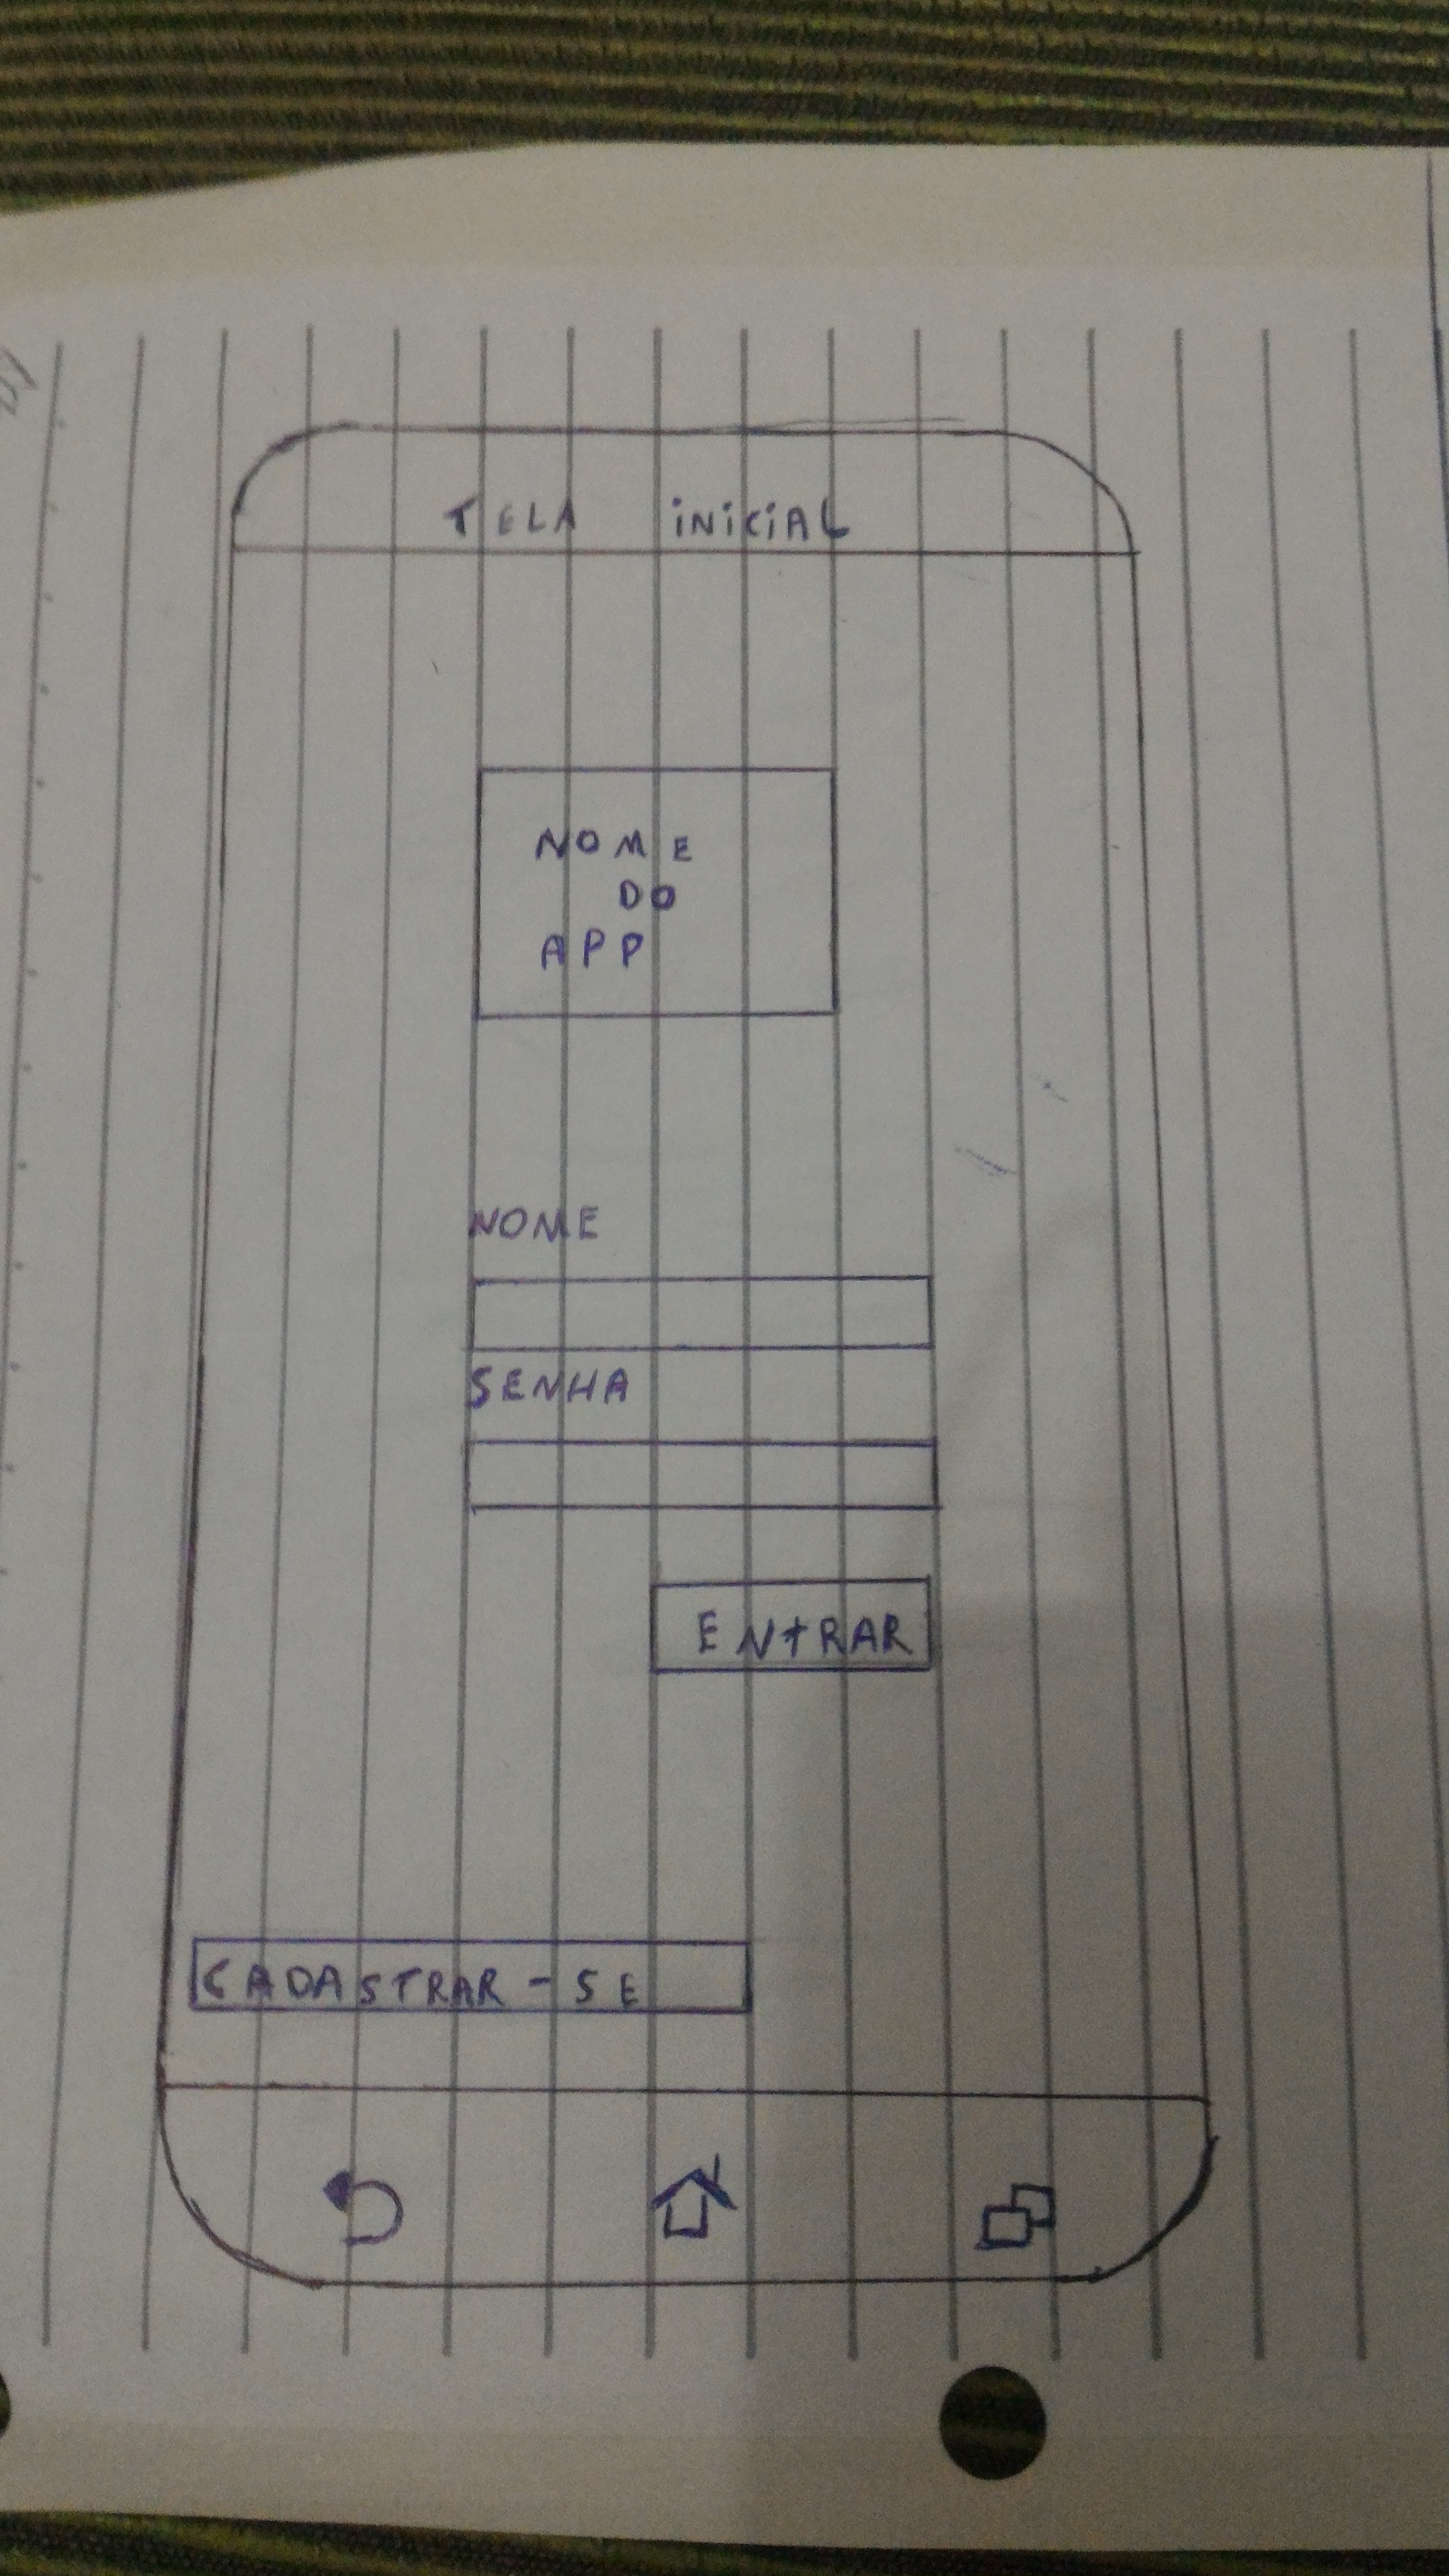 TELA INICIAL
NOME
DO
APP
NOME
SENHA
ENTRAR
CADASTRAR-SE